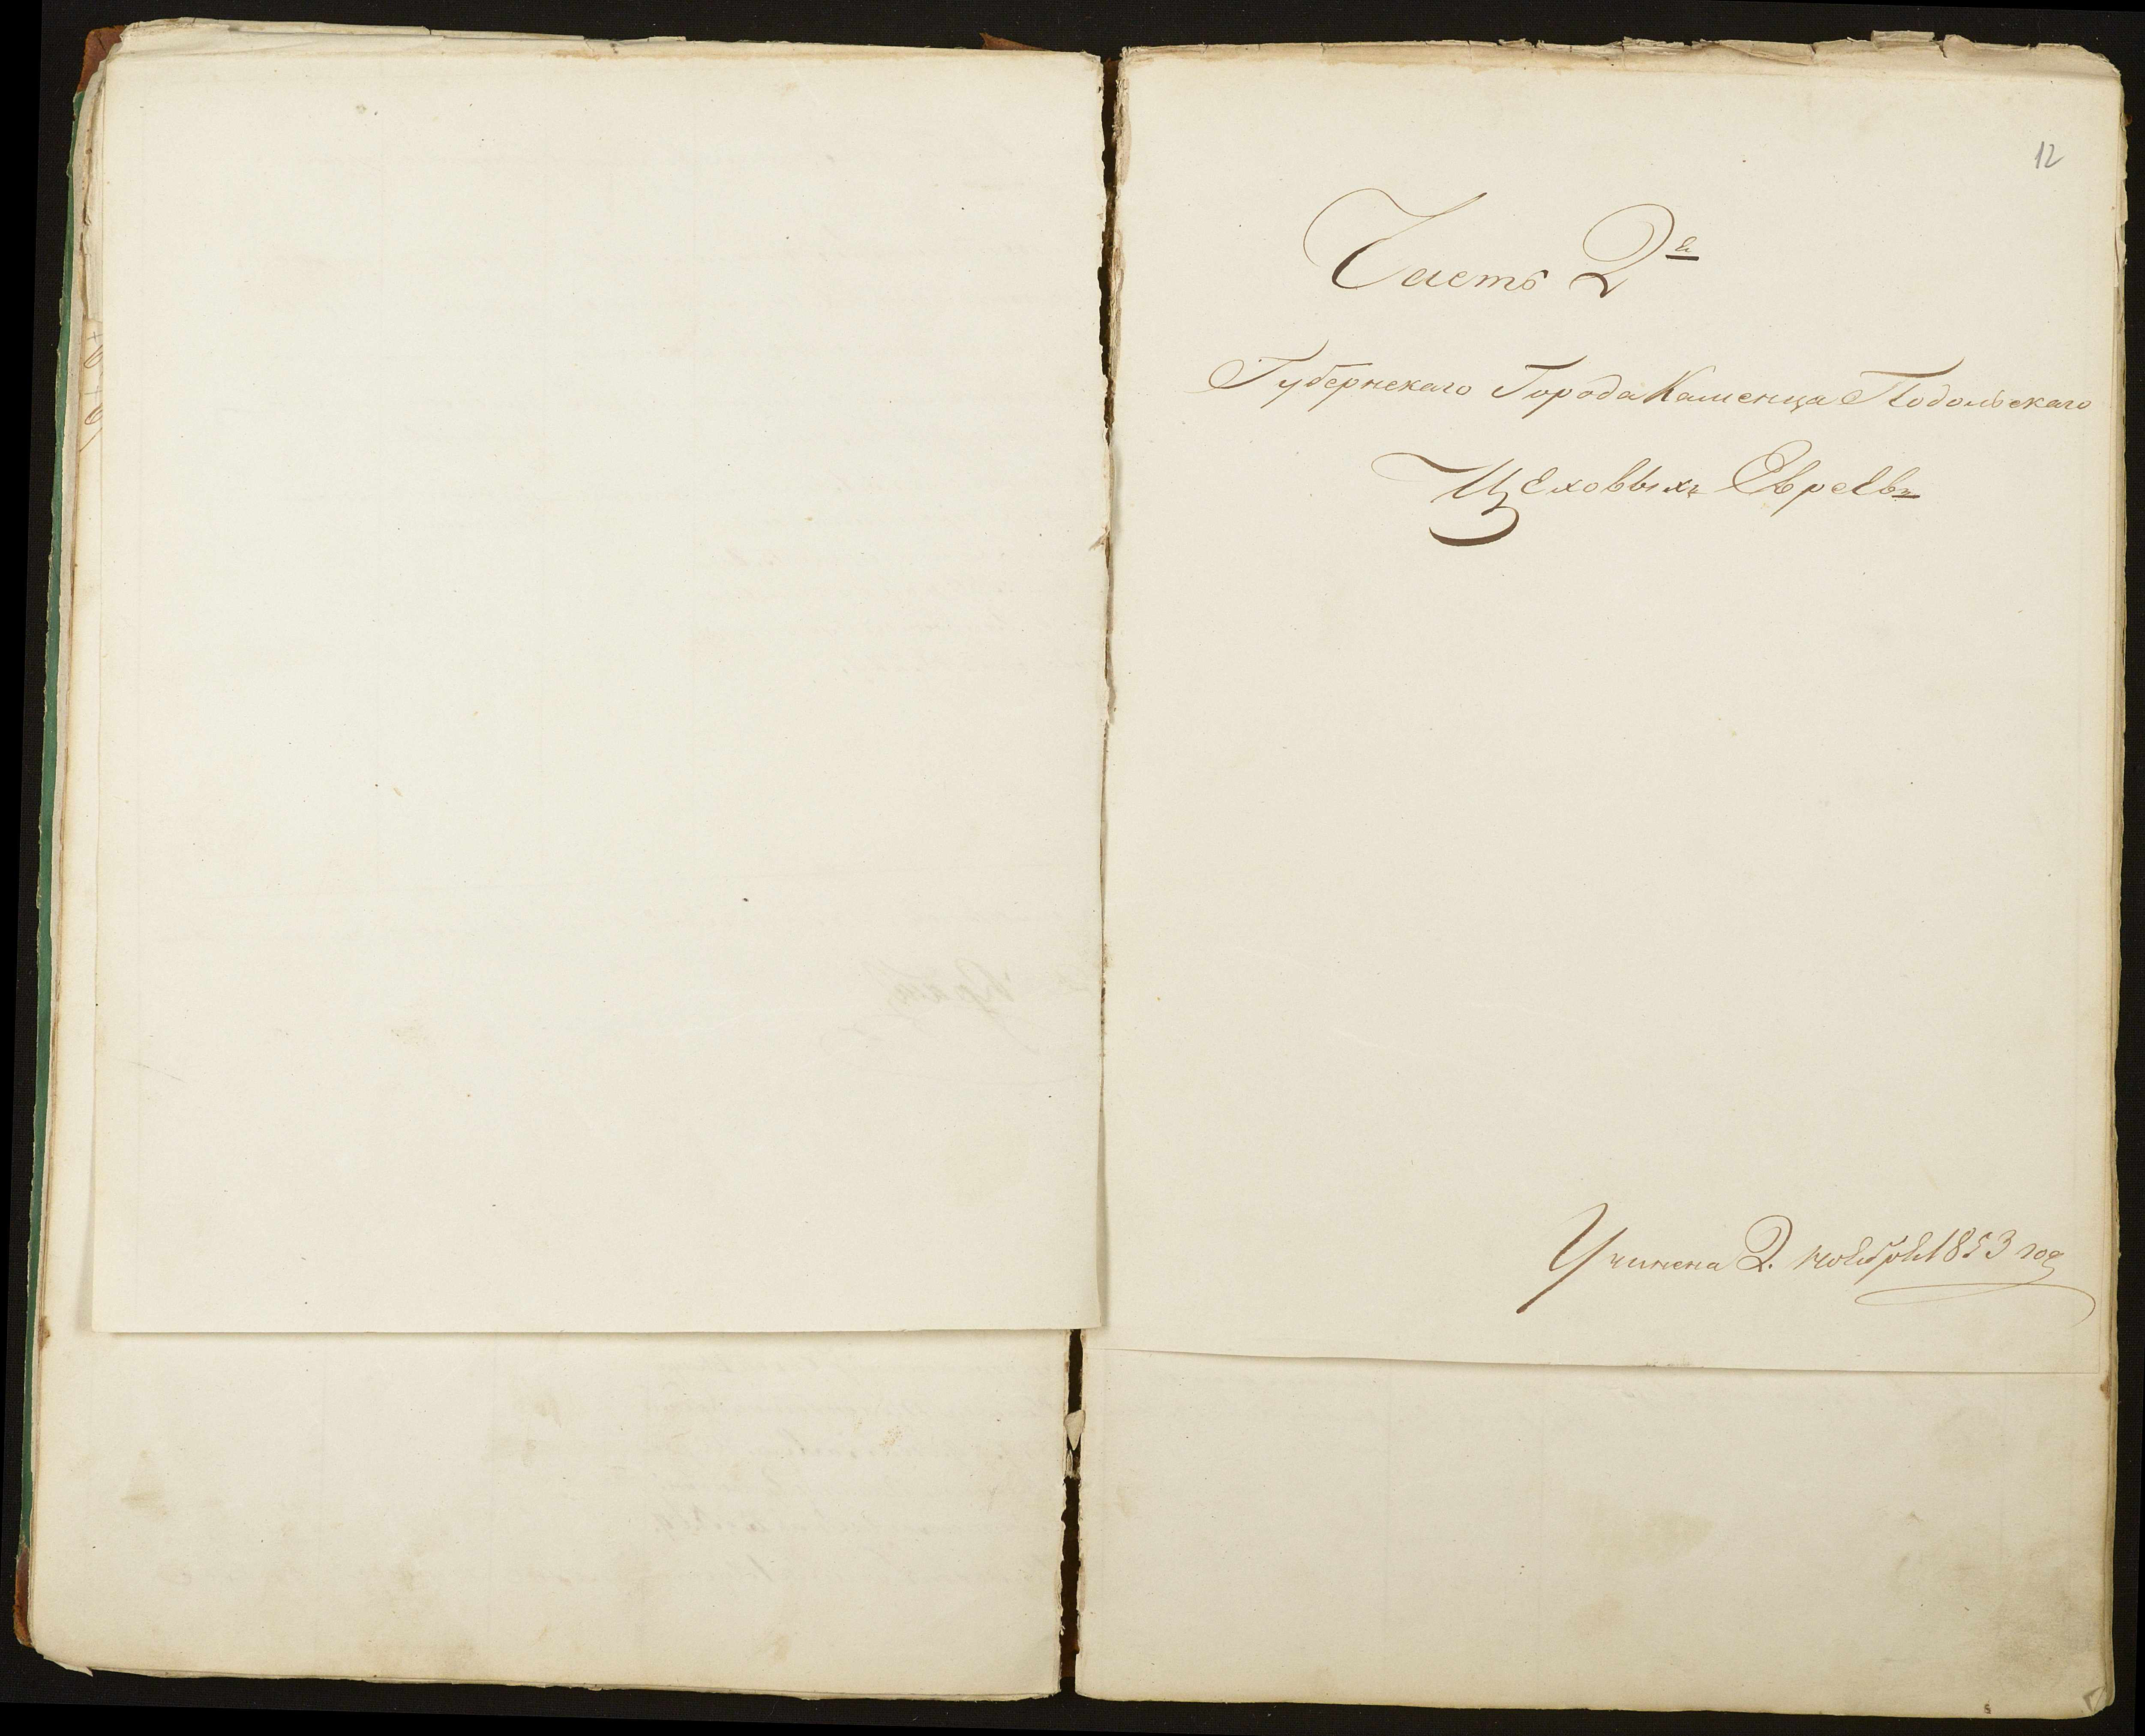 12
Часть 2я
Губернскаго Города Каменца Подольскаго
Цеховыхъ Евреевъ
Учинена 2. ноября 1853 года